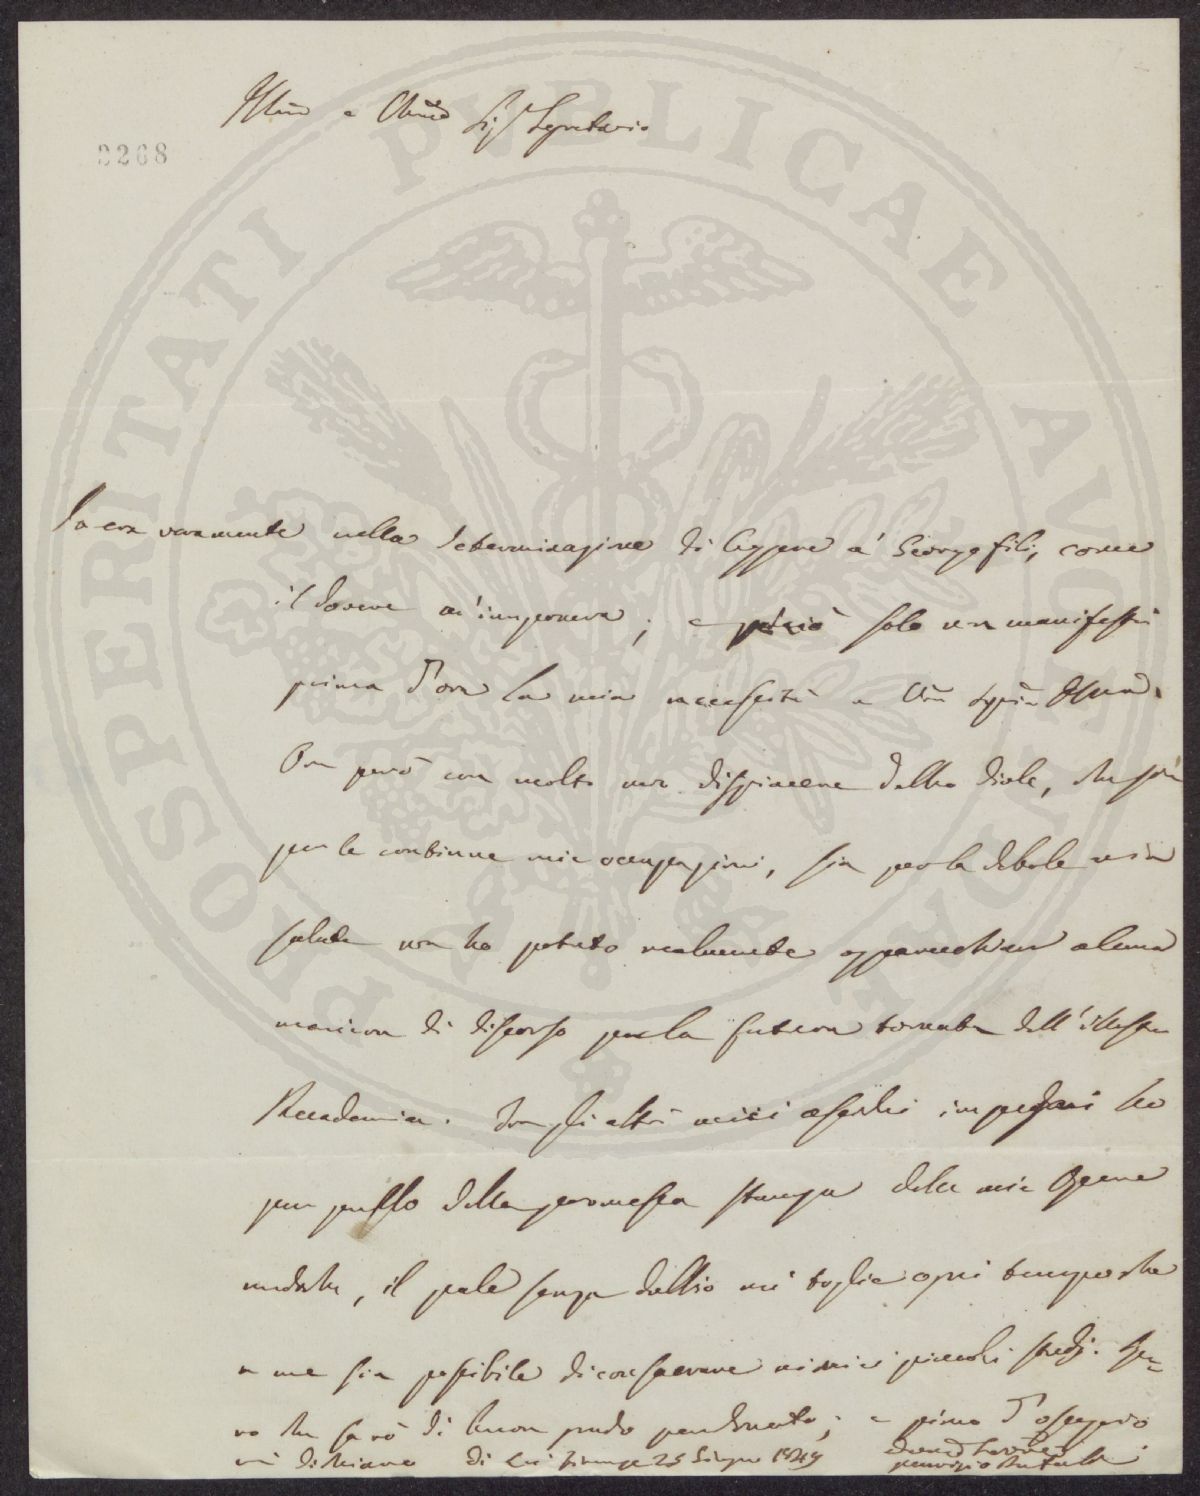 Illmo e Chiarmo Sigr Segretario
3268
PROSPERITATI PUBLICAE AUGENDAE
Io era veramente nella determinazione di leggere a' Georgofili, come
il dovere m'imponeva; e perciò solo non manifestai
prima d'ora la mia necessità a
Ora però con molto mio dispiacere debbo dirle, che sia
per le continue mie occupazioni, sia per la debole mia
salute non ho potuto realmente apparecchiare alcuna
maniera di discorso per la futura tornata dell'illustre
Accademia. Tra gli altri miei assidui impegni ho
pur quello della promessa stampa delle mie Opere
mediche, il quale senza dubbio mi toglie ogni tempo che
a me sia possibile di conservare ai miei piccoli studj. Spe-
ro che sarò di buon grado perdonato; e pieno d'ossequio
mi dichiaro di Lei Firenze 25 Giugno 1849
Maurizio Bufalini